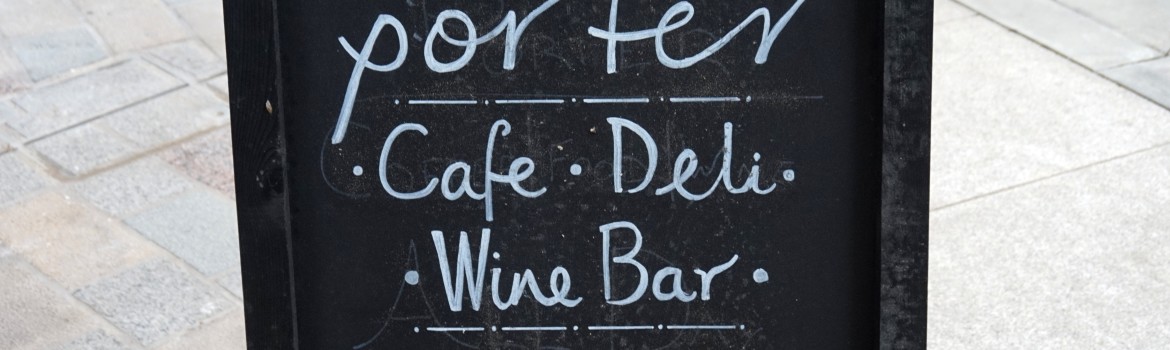 porter
· Cafe · Deli ·
· Wine Bar ·